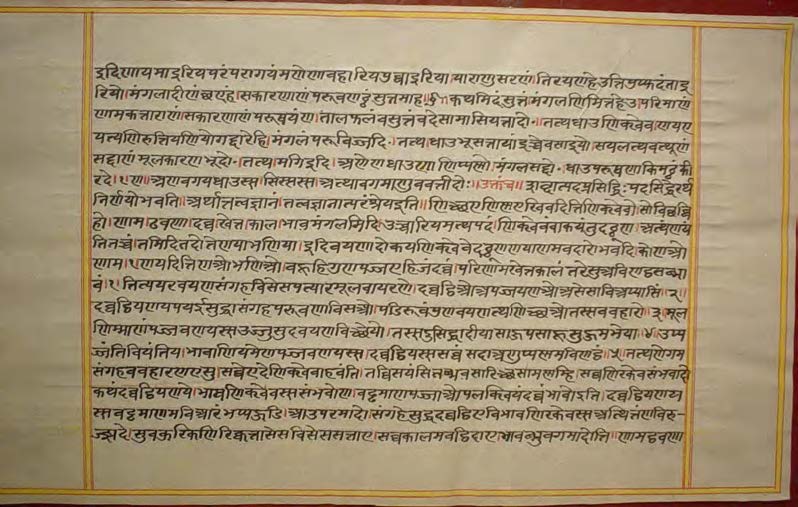 इदिणायमाइरियपरंपरागयंमणेणावहारियपुव्वाइरियायाराणुसरणं।तिरयणहेउत्तिपुप्फदंताइ
रियो।मंगलादीणंछण्हंसकारणाणंपरूवणट्ठंसुत्तमाह॥ कथमिदंसुत्तंमंगलणिमित्तहेउपरिमाण
णामकत्ताराणंसकारणाणंपरूवयं।ण।तालफलंवसुत्तंवदेसामासियत्तादो।तत्थधाउणिक्खेवणय
एयत्थणिरुत्तियणियोगद्दारेहिमंगलंपरूविज्जदि।तत्थधाभूसत्तायाइच्चेवमाइयोसयलत्थवत्थूणं
सद्दाणंमूलकारणभूदो।तत्थमगिइदिअणेणधाउणाणिप्पण्णोमंगलसद्दो।धाउपरूवणाकिमट्ठंकी
रदे।ण।अणवगयधाउस्ससिस्सस्सअत्थावगमाणुववत्तीदो।उक्तंच।शब्दात्पदप्रसिद्धिःपदसिद्धेरर्थ
निर्णयोभवति।अर्थात्तत्त्वज्ञानंतत्त्वज्ञानात्परंश्रेयइति।णिच्छएणिण्णएखिवदित्तिणिक्खेवो।सोविछव्वि
हो।णामट्ठवणादव्वखेत्तकालभावमंगलमिदिउच्चारियमत्थपदंणिक्खेवंवाकयंतुदट्ठूण।अत्थंणयं
तितच्चंतमिदितदोतेणयाभणिया।इदिवयणादोकयणिक्खेवेदट्ठूणणयाणमवदारोभवदि।कोणओ
णाम।णयदित्तिणओभणिओबहूहिगुणपज्जएहिजंदव्वं।परिणामखेत्तकालंतरेसुअविणट्ठसब्भा
वं।१तित्थयरवयणसंगहविसेसपत्थारमूलवायरणी।दव्वट्ठिओअपज्जयणओअसेसावियप्पासिं।२।
दव्वट्ठियणयपयईसुद्धासंगहपरूवणाविसओ।पडिरूवंपुणवयणत्थणिच्छओतस्सववहारो।३मूल
णिम्माणंपज्जवणयस्सउज्जुसुदवयणविच्छेदो।तस्सदुसद्दादीयासाहपसाहसुहुमभेया।४।उप्प
ज्जंतिवियंतियभावाणियमेणपज्जवणयस्स।दव्वट्ठियस्ससव्वंसदाअणुप्पण्णमविणट्ठं।५।तत्थणेगम
संगहववहारणएसुसव्वेएदेणिक्खेवाहवंति।तव्विसयंमितब्भवसारिच्छसामण्णम्हिसव्वणिक्खेवसंभवादो
कधंदव्वट्ठियणयेभावणिक्खेवस्ससंभवो।णवट्टमाणपज्जाओवलक्खियंदव्वंभावोइदिदव्वट्ठियणय
स्सवट्टमाणमविआरंभप्पहुडिआउपरमादो।संगहेसुद्धदव्वट्ठिएविभावणिक्खेवस्सअत्थित्तंणविरु-
ज्झदे।सुवकुक्खिणिक्खित्तासेसविसेससत्ताएसव्वकालमवट्ठिदाएभावब्भुवगमादोत्ति॥णामट्ठवणा